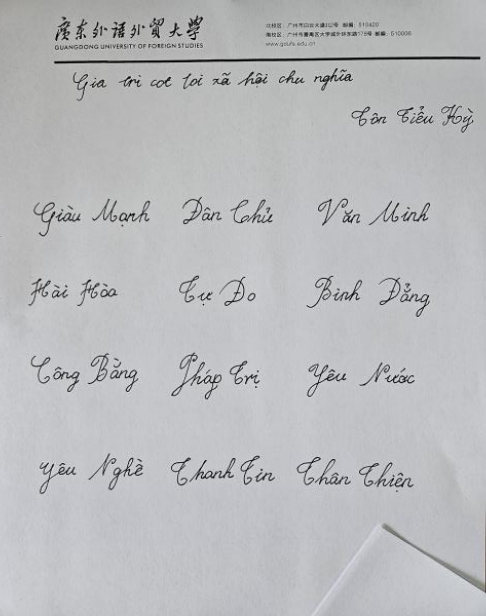 廣东外语外贸大學
GUANGDONG UNIVERSITY OF FOREIGN STUDIES
510420
510006
www.gdufs.edu.cn
Gia trì cot loi xã hội chu nghĩa
Tôn Tiểu Kỳ
Giàu Mạnh Dân Chủ Văn Minh
Hài Hòa Tự Do Bình Đẳng
Công Bằng Pháp Trị Yêu Nước
Yêu Nghề Thanh Tin Thân Thiện